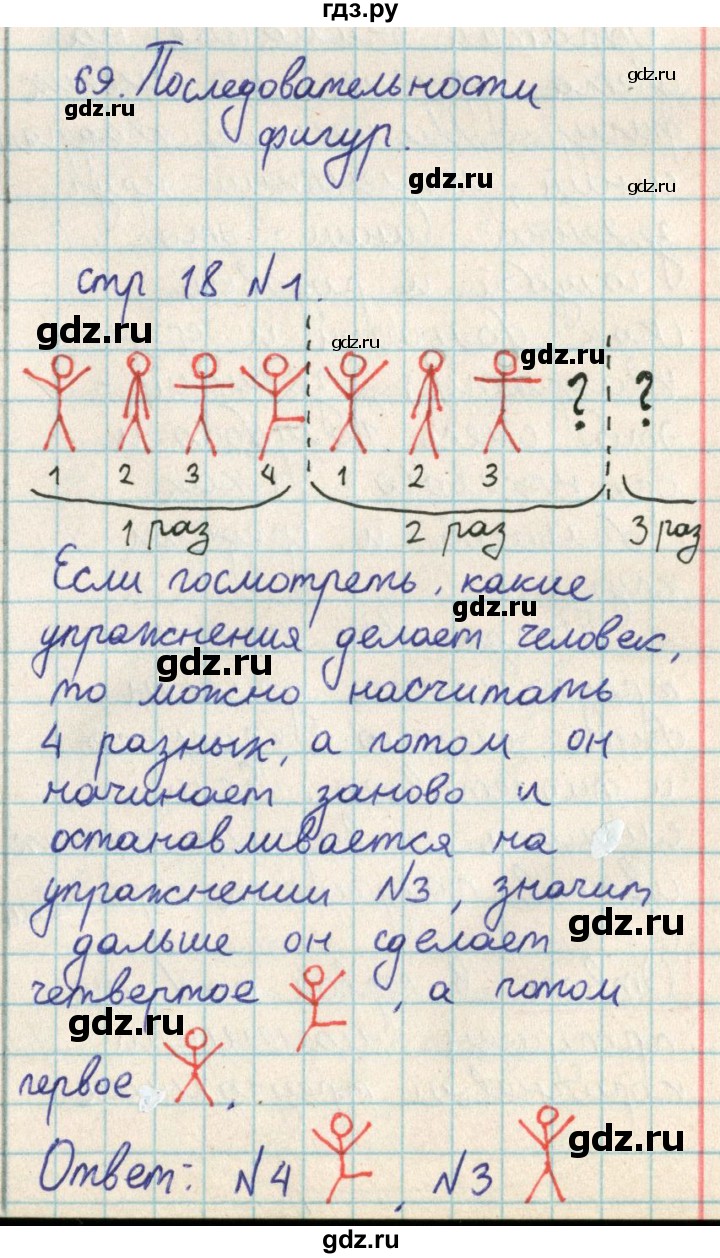 гдз.ру
69. Последовательности
gdz.ru
gdz.ru
фигур.
gdz.ru
gdz.ru
стр 18 №1.
gdz.ru
gdz.ru
gdz.ru
? ?
1 2 3 4 1 2 3
1 раз 2 раз 3 раз
Если посмотреть, какие
gdz.ru
упражнения делает человек,
gdz.ru
то можно насчитать
4 разных, а потом он
начинает заново и
останавливается на
упражнении №3, значит
gdz.ru
дальше он сделает
четвертое , а потом
gdz.ru
первое .
Ответ: №4 , №3
gdz.ru
gdz.ru